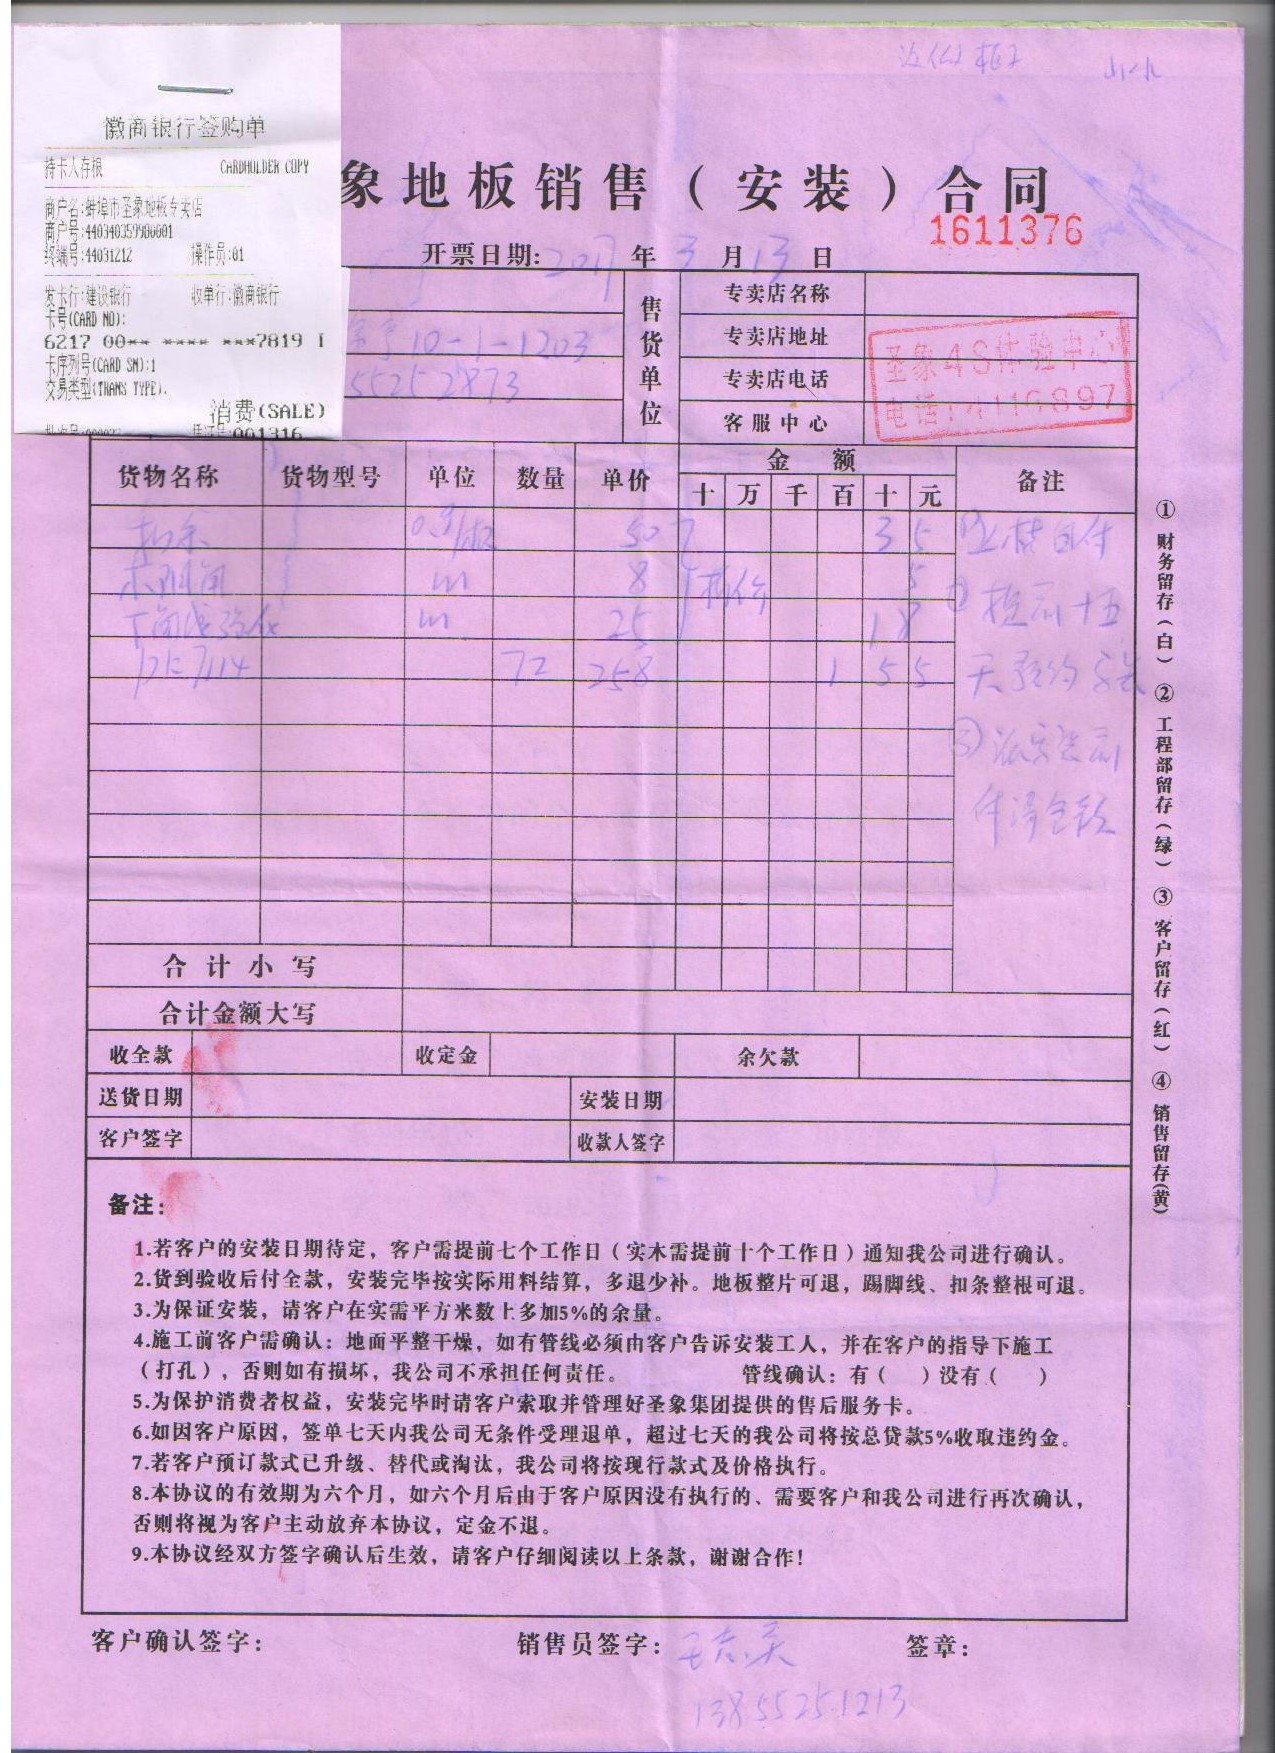 徽商银行签购单
持卡人存根 CARDHOLDER COPY
商户名:蚌埠市圣象地板专卖店
商户号:440340359980001
终端号:44031212 操作员:01
发卡行:建设银行 收单行:徽商银行
卡号(CARD NO):
6217 00** **** ***7819 I
卡序列号(CARD SN):1
交易类型(TRANS TYPE).
消费(SALE)
001316
象地板销售(安装)合同
1611376
开票日期: 2017 年 3 月 13 日
售货单位
专卖店名称
10-1-1203
专卖店地址
55252873
专卖店电话
客服中心
圣象4S体验中心
电话:4116897
货物名称 货物型号 单位 数量 单价 金额 备注
十 万 千 百 十 元
扣条 50 3 5
m 8 5
m 25 1 8
7114 72 258 1 5 5
合计小写
合计金额大写
收全款 收定金 余欠款
送货日期 安装日期
客户签字 收款人签字
①财务留存(白)②工程部留存(绿)③客户留存(红)④销售留存(黄)
备注:
1.若客户的安装日期待定,客户需提前七个工作日(实木需提前十个工作日)通知我公司进行确认。
2.货到验收后付全款,安装完毕按实际用料结算,多退少补。地板整片可退,踢脚线、扣条整根可退。
3.为保证安装,请客户在实需平方米数上多加5%的余量。
4.施工前客户需确认:地面平整干燥,如有管线必须由客户告诉安装工人,并在客户的指导下施工
(打孔),否则如有损坏,我公司不承担任何责任。 管线确认:有( )没有( )
5.为保护消费者权益,安装完毕时请客户索取并管理好圣象集团提供的售后服务卡。
6.如因客户原因,签单七天内我公司无条件受理退单,超过七天的我公司将按总贷款5%收取违约金。
7.若客户预订款式已升级、替代或淘汰,我公司将按现行款式及价格执行。
8.本协议的有效期为六个月,如六个月后由于客户原因没有执行的、需要客户和我公司进行再次确认,
否则将视为客户主动放弃本协议,定金不退。
9.本协议经双方签字确认后生效,请客户仔细阅读以上条款,谢谢合作!
客户确认签字: 销售员签字: 签章:
13855251213